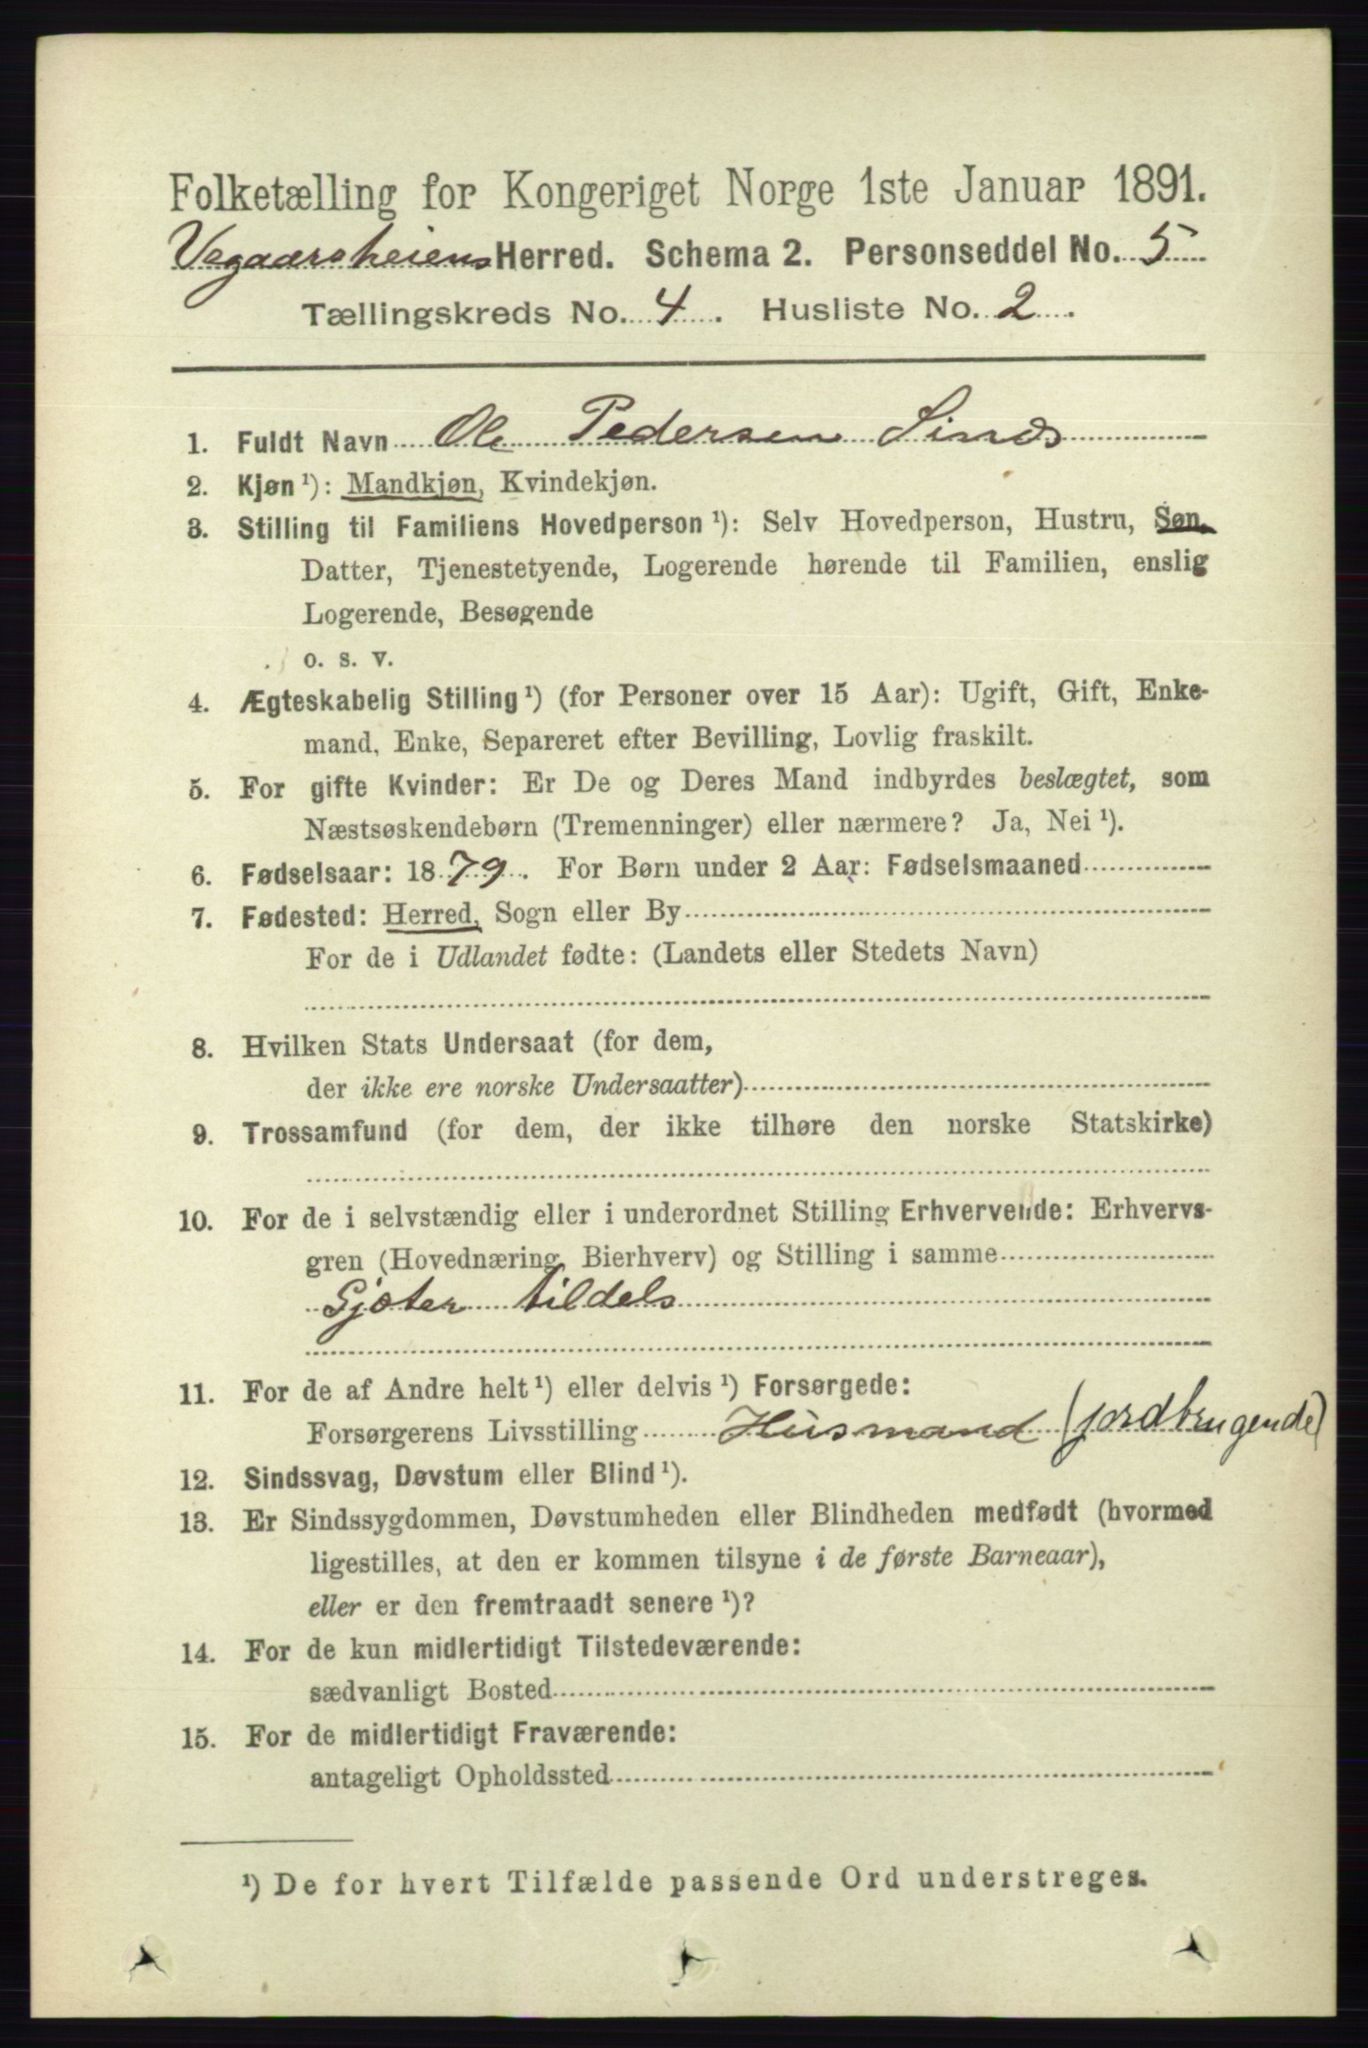 Folketælling for Kongeriget Norge 1ste Januar 1891.
Vegaarsheiens Herred. Schema 2. Personseddel No. 5
Tællingskreds No. 4. Husliste No. 2.
1. Fuldt Navn Ole Pedersen Sinds
2. Kjøn ¹): Mandkjøn, Kvindekjøn.
3. Stilling til Familiens Hovedperson ¹): Selv Hovedperson, Hustru, Søn,
Datter, Tjenestetyende, Logerende hørende til Familien, enslig
Logerende, Besøgende
o. s. v.
4. Ægteskabelig Stilling ¹) (for Personer over 15 Aar): Ugift, Gift, Enke-
mand, Enke, Separeret efter Bevilling, Lovlig fraskilt.
5. For gifte Kvinder: Er De og Deres Mand indbyrdes beslægtet, som
Næstsøskendebørn (Tremenninger) eller nærmere? Ja, Nei ¹).
6. Fødselsaar: 1879. For Børn under 2 Aar: Fødselsmaaned
7. Fødested: Herred, Sogn eller By
For de i Udlandet fødte: (Landets eller Stedets Navn)
8. Hvilken Stats Undersaat (for dem,
der ikke ere norske Undersaatter)
9. Trossamfund (for dem, der ikke tilhøre den norske Statskirke)
10. For de i selvstændig eller i underordnet Stilling Erhvervende: Erhvervs-
gren (Hovednæring, Bierhverv) og Stilling i samme
Gjæter tildels
11. For de af Andre helt ¹) eller delvis ¹) Forsørgede:
Forsørgerens Livsstilling Husmand (jordbrugende)
12. Sindssvag, Døvstum eller Blind ¹).
13. Er Sindssygdommen, Døvstumheden eller Blindheden medfødt (hvormed
ligestilles, at den er kommen tilsyne i de første Barneaar),
eller er den fremtraadt senere ¹)?
14. For de kun midlertidigt Tilstedeværende:
sædvanligt Bosted
15. For de midlertidigt Fraværende:
antageligt Opholdssted
¹) De for hvert Tilfælde passende Ord understreges.